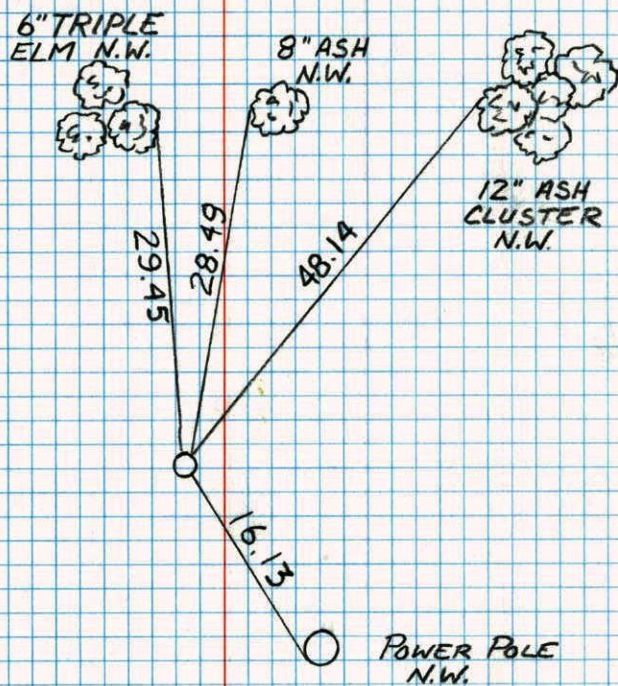 6" TRIPLE
ELM N.W.
8" ASH
N.W.
12" ASH
CLUSTER
N.W.
29.45
28.49
48.14
16.13
POWER POLE
N.W.